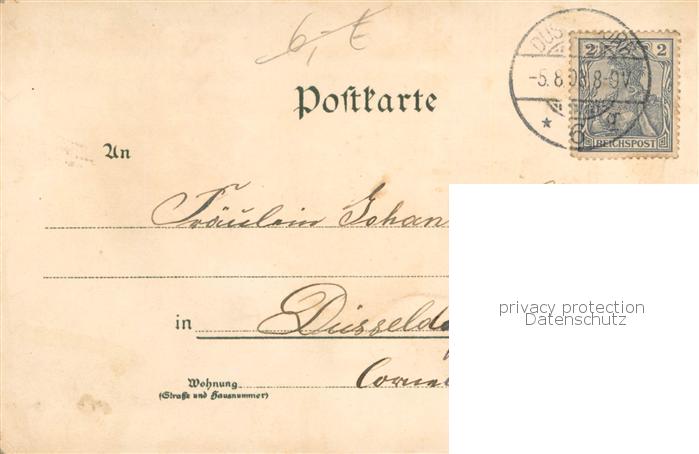 6,- €
Postkarte
2 2
-5.8. 8-9V.
REICHSPOST
An
Fräulein Johan
in Düsseldo
Wohnung
(Straße und Hausnummer)
Corne
privacy protection
Datenschutz